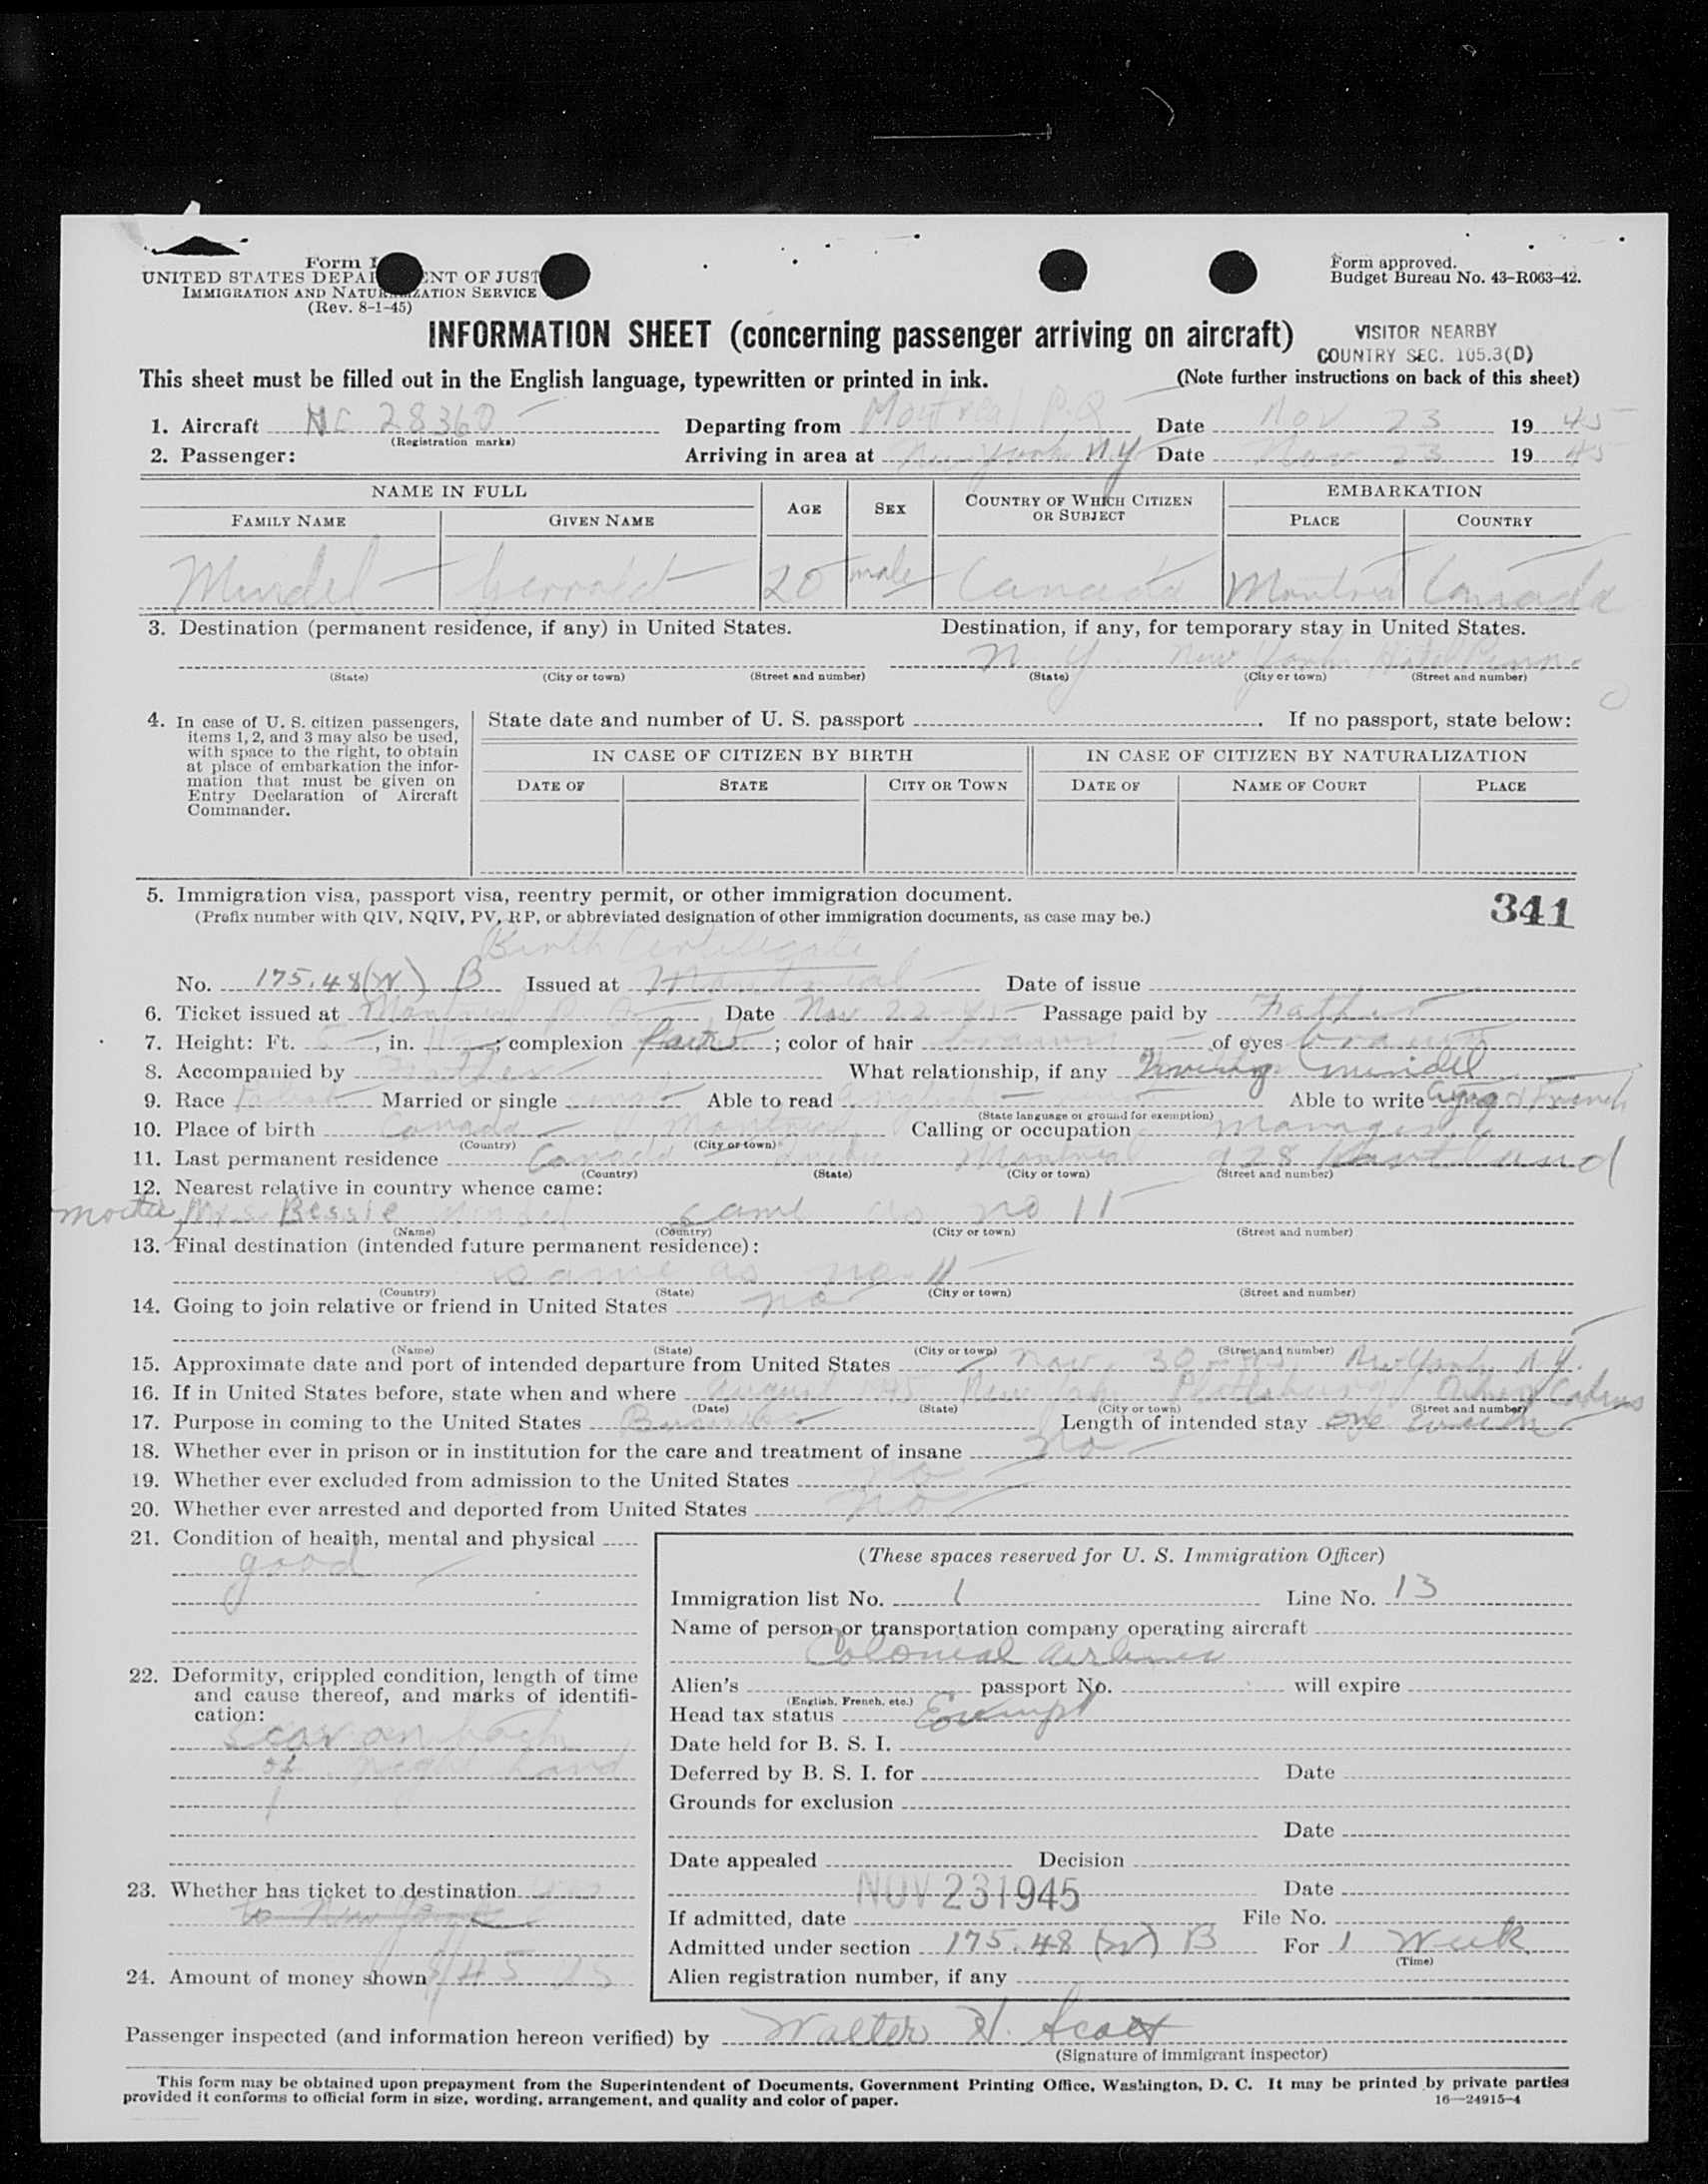 Form I
UNITED STATES DEPAR ENT OF JUST
IMMIGRATION AND NATURALIZATION SERVICE
(Rev. 8-1-45)
Form approved.
Budget Bureau No. 43-R063-42.
INFORMATION SHEET (concerning passenger arriving on aircraft)
VISITOR NEARBY
COUNTRY SEC. 105.3(D)
This sheet must be filled out in the English language, typewritten or printed in ink. (Note further instructions on back of this sheet)
1. Aircraft NC 28360 Departing from Montreal P.Q. Date Nov 23 1945
(Registration marks)
2. Passenger: Arriving in area at New York N.Y. Date Nov 23 1945
NAME IN FULL AGE SEX COUNTRY OF WHICH CITIZEN OR SUBJECT EMBARKATION
FAMILY NAME GIVEN NAME PLACE COUNTRY
Mindel Gerrald 20 male Canada Montreal Canada
3. Destination (permanent residence, if any) in United States. Destination, if any, for temporary stay in United States.
N.Y. New York Hotel Penn.
(State) (City or town) (Street and number) (State) (City or town) (Street and number)
4. In case of U. S. citizen passengers, items 1, 2, and 3 may also be used, with space to the right, to obtain at place of embarkation the information that must be given on Entry Declaration of Aircraft Commander.
State date and number of U. S. passport . If no passport, state below:
IN CASE OF CITIZEN BY BIRTH IN CASE OF CITIZEN BY NATURALIZATION
DATE OF STATE CITY OR TOWN DATE OF NAME OF COURT PLACE
5. Immigration visa, passport visa, reentry permit, or other immigration document. 341
(Prefix number with QIV, NQIV, PV, RP, or abbreviated designation of other immigration documents, as case may be.)
Birth Certificate
No. 175.48(W) B Issued at Montreal Date of issue
6. Ticket issued at Montreal P.Q. Date Nov 22-45 Passage paid by Father
7. Height: Ft. 5, in. ; complexion fair ; color of hair brown of eyes brown
8. Accompanied by Father What relationship, if any Irving Mindel
9. Race Married or single single Able to read English Able to write Eng & French
(State language or ground for exemption)
10. Place of birth Canada Montreal Calling or occupation manager
(Country) (City or town)
11. Last permanent residence Canada Quebec Montreal 928 Hartland
(Country) (State) (City or town) (Street and number)
12. Nearest relative in country whence came:
Mother Mrs. Bessie Mindel same as no 11
(Name) (Country) (City or town) (Street and number)
13. Final destination (intended future permanent residence):
same as no. 11
(Country) (State) (City or town) (Street and number)
14. Going to join relative or friend in United States no
(Name) (State) (City or town) (Street and number)
15. Approximate date and port of intended departure from United States Nov. 30-45 New York N.Y.
16. If in United States before, state when and where August 1945 New York Plattsburg
(Date) (State) (City or town) (Street and number)
17. Purpose in coming to the United States Business Length of intended stay one week
18. Whether ever in prison or in institution for the care and treatment of insane no
19. Whether ever excluded from admission to the United States no
20. Whether ever arrested and deported from United States no
21. Condition of health, mental and physical
good
22. Deformity, crippled condition, length of time and cause thereof, and marks of identification:
scar on back
of right hand
23. Whether has ticket to destination yes
to New York
24. Amount of money shown
(These spaces reserved for U. S. Immigration Officer)
Immigration list No. 1 Line No. 13
Name of person or transportation company operating aircraft
Colonial Airlines
Alien's passport No. will expire
(English, French, etc.)
Head tax status Exempt
Date held for B. S. I.
Deferred by B. S. I. for Date
Grounds for exclusion
Date
Date appealed Decision
NOV 23 1945 Date
If admitted, date File No.
Admitted under section 175.48 (W) B For 1 Week
(Time)
Alien registration number, if any
Passenger inspected (and information hereon verified) by Walter H. Scott
(Signature of immigrant inspector)
This form may be obtained upon prepayment from the Superintendent of Documents, Government Printing Office, Washington, D. C. It may be printed by private parties
provided it conforms to official form in size, wording, arrangement, and quality and color of paper. 16—24915-4